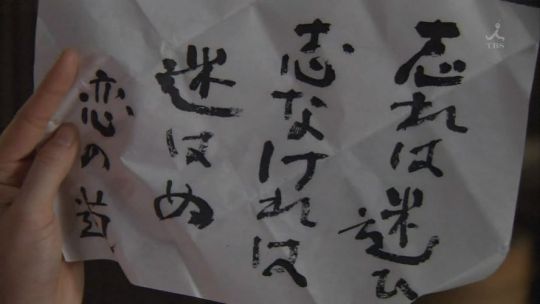 志れは迷ひ
志なけれは
迷はぬ
恋の道
TBS